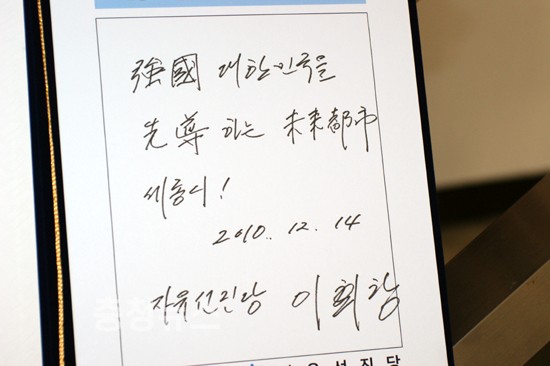 強國 대한민국을
先尊 하는 未來都市
세종시!
2010. 12. 14
자유선진당 이회창
충청뉴스
유선진당